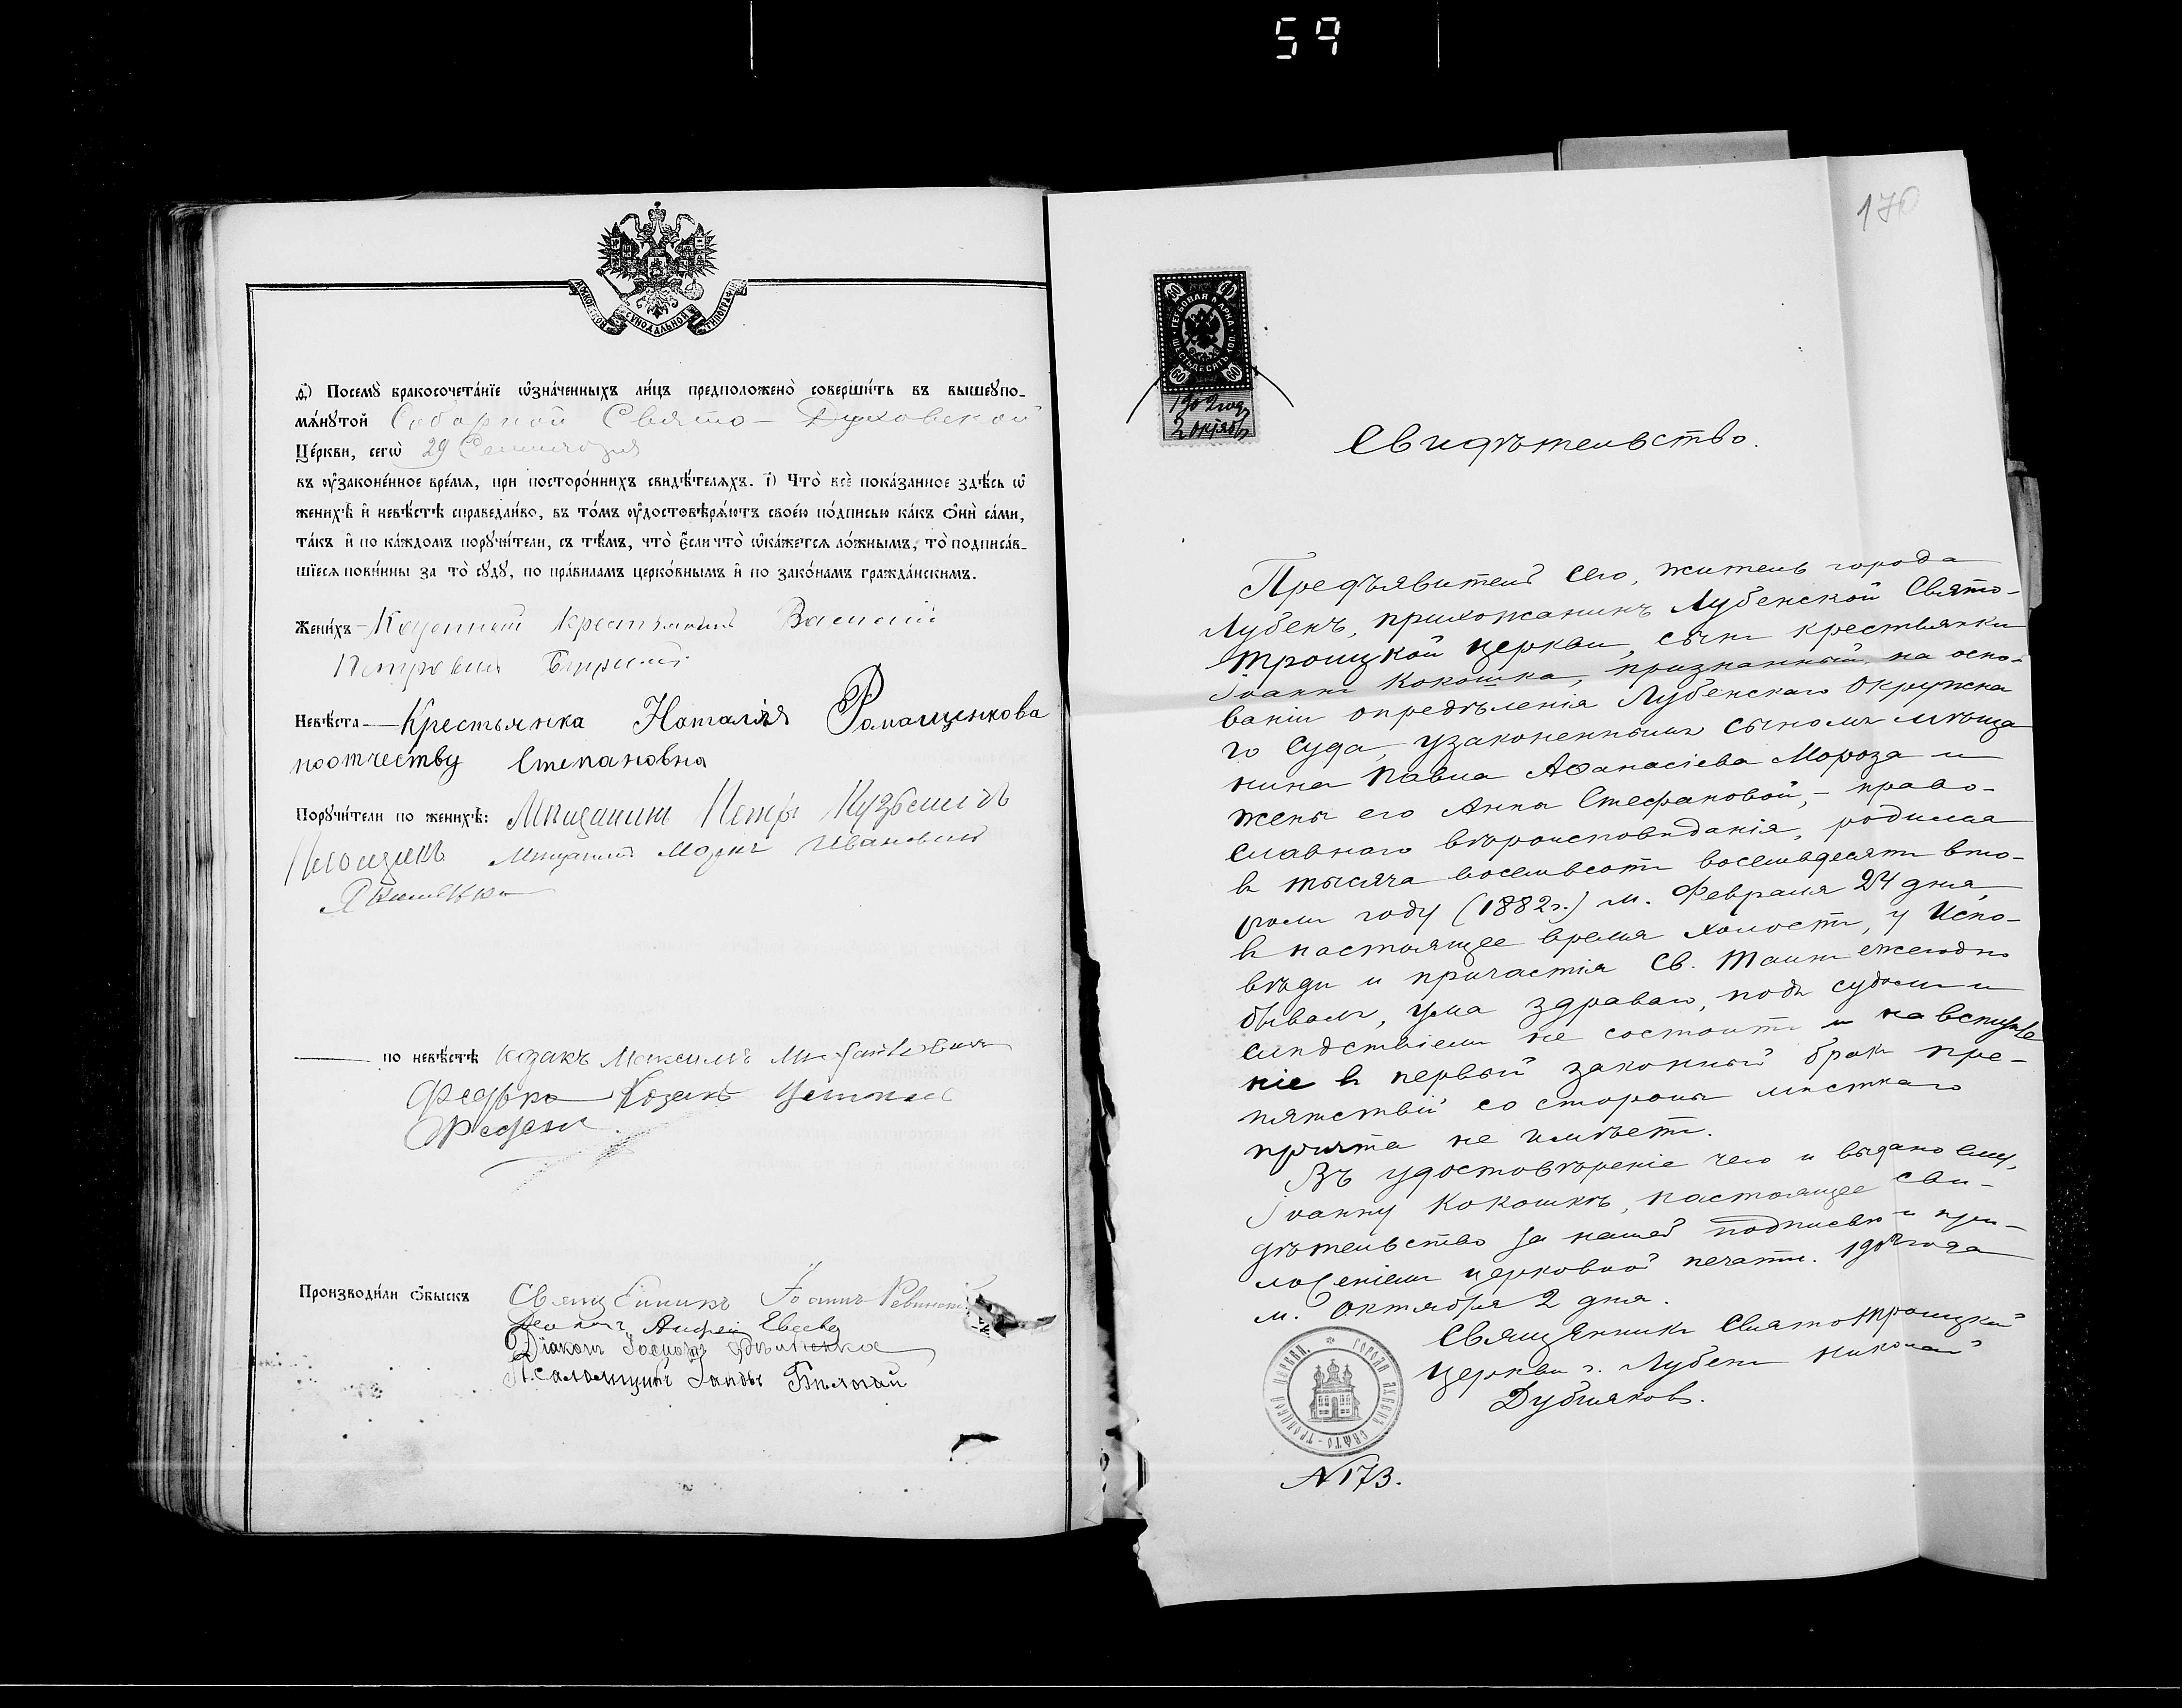 59
МОСКОВСКОЙ СѴНОДАЛЬНОЙ ТИПОГРАФІИ
д҃) Посемꙋ̀ бракосочета́нїе ѡ҆зна́ченныхъ ли́цъ предположено̀ соверши́ть въ вышеꙋпо-
мѧ́нꙋтой Соборной Свято-Духовской
Це́ркви, сегѡ̀ 29 Сентября
въ ᲂу҆законе́нное вре́мѧ, при посторо́ннихъ свидѣ́телѧхъ. і҃) Что̀ всѐ пока́занное здѣ́сь ѡ҆
женихѣ̀ и҆ невѣ́стѣ справедли́во, въ то́мъ ᲂу҆достовѣрѧ́ютъ свое́ю по́дписью ка́къ ѻ҆нѝ са́ми,
та́къ и҆ по ка́ждомъ порꙋчи́тели, съ тѣ́мъ, что̀ є҆́сли что̀ ѡ҆ка́жетсѧ ло́жнымъ, то̀ подписа́в-
шїесѧ пови́нны за то̀ сꙋдꙋ̀, по пра́виламъ церко́внымъ и҆ по зако́намъ гражда́нскимъ.
Жени́хъ - крестьянинъ Василій
Петровичъ
Невѣ́ста - Крестьянка Наталія Ромащенкова
поотчеству Степановна
Порꙋчи́тели по женихѣ̀: Мѣщанинъ Петръ Кузьмичъ
Мѣщанинъ Ивановичъ
по невѣ́стѣ козакъ Максимъ
Федько Козакъ
Производи́ли ѻ҆́быскъ Священникъ Іоаннъ
Андрей Евсевъ
Діаконъ Іосифъ
Псаломщикъ
170
ГЕРБОВАЯ МАРКА
ШЕСТЬДЕСЯТЪ КОП.
60 60
60 60
1902 год
2 октяб
Свидѣтельство.
Предъявитель сего, житель города
Лубенъ, прихожанинъ Лубенской Свято-
Троицкой церкви, сынъ крестьянки
Іоаннъ Кокошка, признанный, на осно-
ваніи опредѣленія Лубенскаго Окружна
го Суда, узаконеннымъ сыномъ мѣща
нина Павла Аѳанасіева Мороза и
жены его Анны Стефановой, - право-
славнаго вѣроисповѣданія, родился
въ тысяча восемьсотъ восемьдесятъ вто-
ромъ году (1882 г.) м. Февраля 24 дня
въ настоящее время холостъ, у Испо-
вѣди и причастія Св. Таинъ ежегодно
бывалъ, ума здраваго, подъ судомъ и
слѣдствіемъ не состоитъ и на вступле
ніе въ первый законный бракъ пре-
пятствій со стороны мѣстнаго
причта не имѣетъ.
Въ удостовѣреніе чего и выдано ему,
Іоанну Кокошкѣ, настоящее сви-
дѣтельство за нашей подписью и при-
ложеніемъ церковной печати. 1902 года
м. Октября 2 дня.
Священникъ Святотроицкой
церкви г. Лубенъ Николай
Дубняковъ.
ГОРОДА ЛУБЕНЪ СВЯТО-ТРОИЦКОЙ ЦЕРКВИ.
N 173.